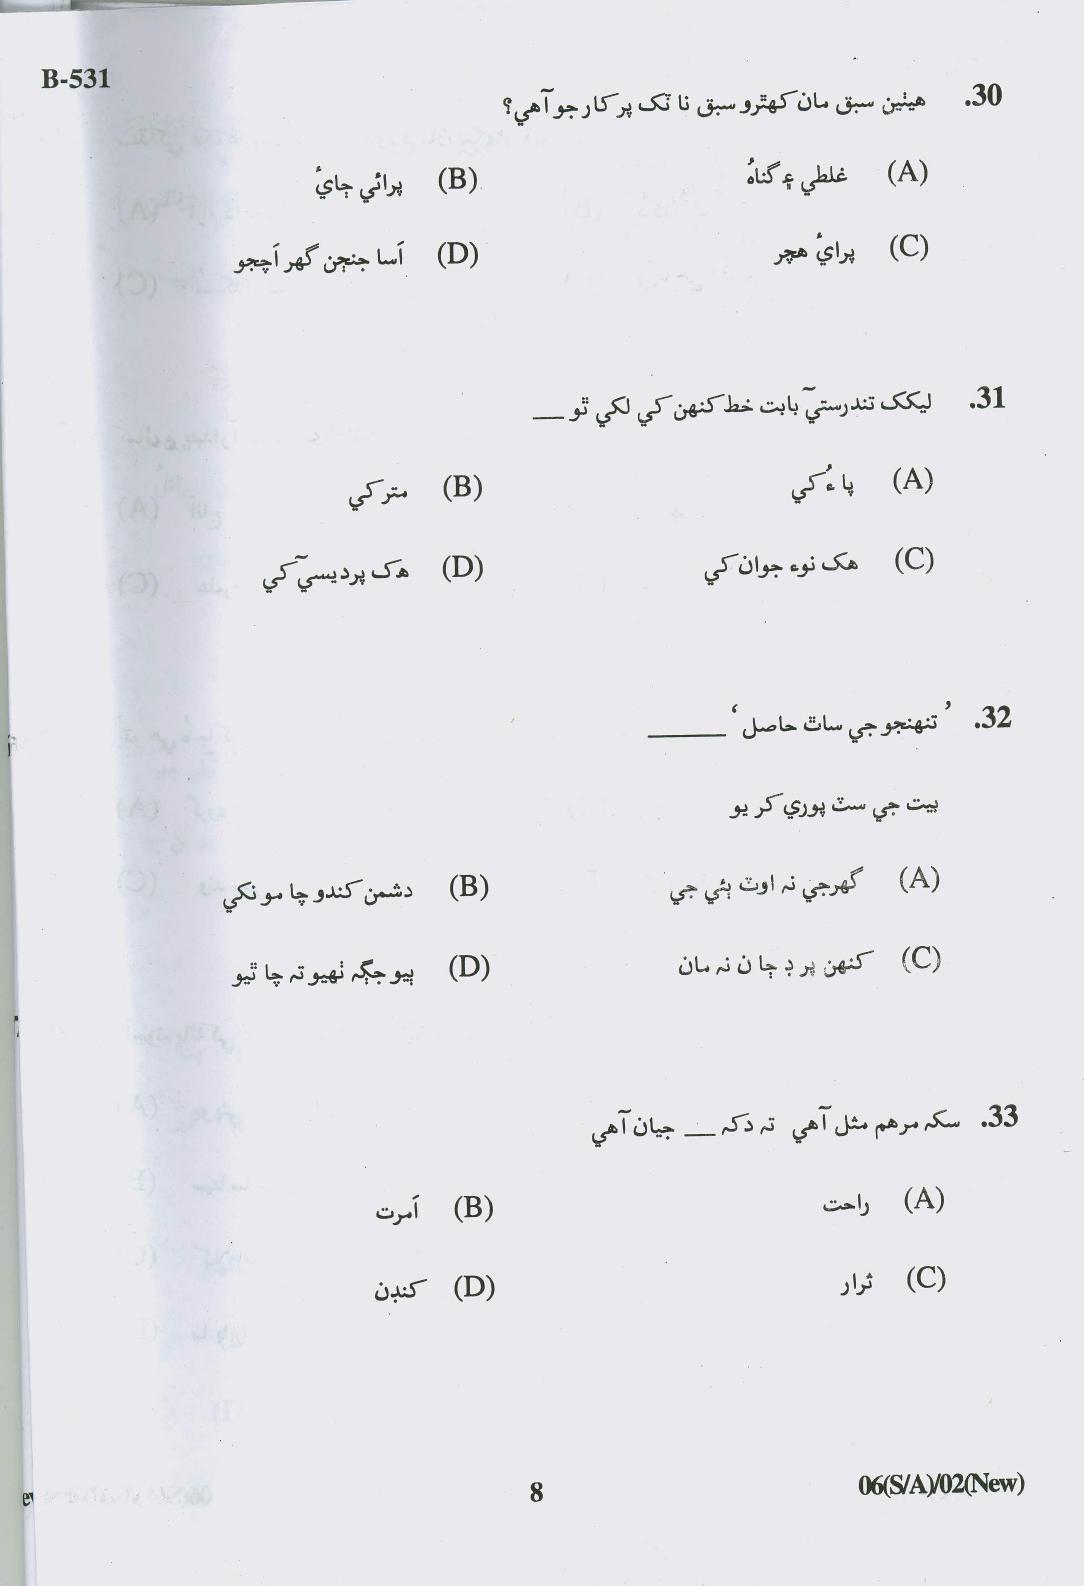 B-531
.30 هيٺين سبق مان ڪهڙو سبق نا ٽڪ پر ڪار جو آهي؟
(A) غلطي ۽ گناهُ (B) پرائي ڄايُ
(C) پرايُ هڄر (D) اَسا جنڃن گهر اَچجو
.31 ليکڪ تندرستيَ بابت خط ڪنهن کي لکي ٿو __
(A) پا ءُ کي (B) متر کي
(C) هڪ نوءِ جوان کي (D) هڪ پرديسيَ کي
.32 ’ تنهنجو جي ساٿ حاصل ‘ ______
بيت جي سٽ پوري ڪر يو
(A) گهرجي نہ اوٽ ٻئي جي (B) دشمن ڪندو ڇا مو نکي
(C) ڪنهن پر ڊ ڄا ن نہ مان (D) ٻيو جڳہ ٺهيو تہ ڇا ٿيو
.33 سکہ مرهم مثل آهي تہ دکہ __ جيان آهي
(A) راحت (B) اَمرت
(C) ثرار (D) ڪنڊن
8
06(S/A)/02(New)